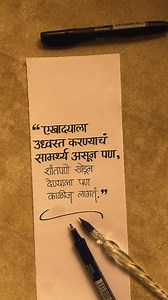 “एखाद्याला
उध्वस्त करण्याचं
सामर्थ्य असून पण,
शांतपणे सोडून
देण्याला पण
काळीज लागतं.”